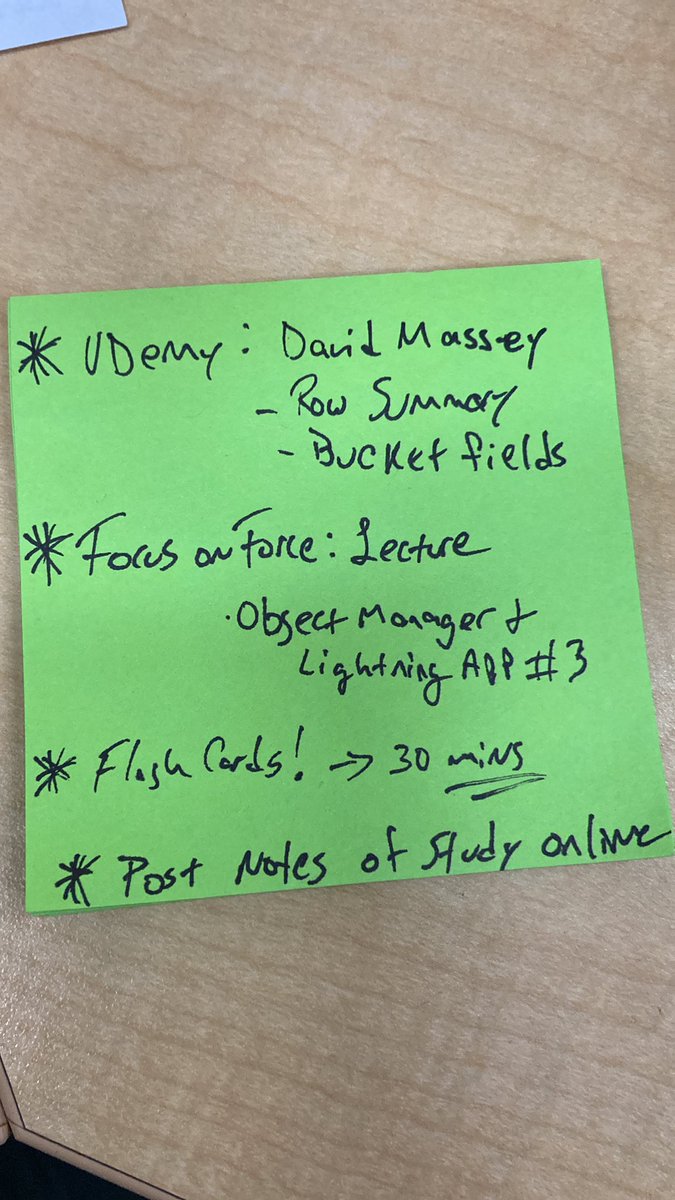 * UDemy: David Massey
- Row Summary
- Bucket fields
* Focus on Force: Lecture
· Object Manager +
Lightning App #3
* Flash Cards! → 30 mins
* Post Notes of Study online